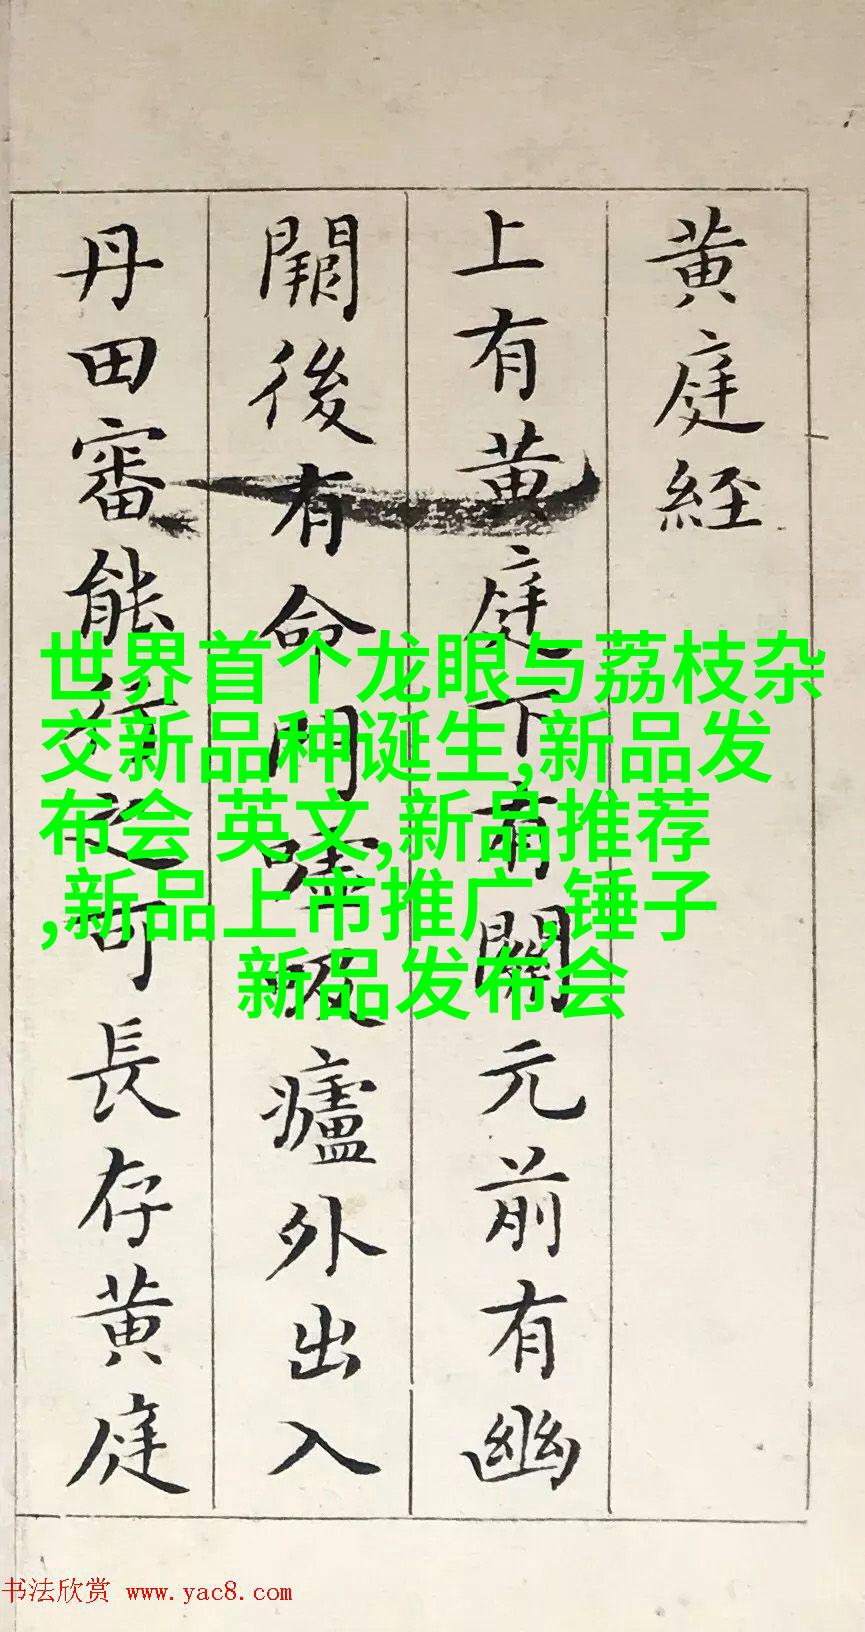 黄庭經
上有黄庭下有關元前有幽
闕後有命門嘘吸廬外出入
丹田審能行之可長存黄庭
世界首个龙眼与荔枝杂
交新品种诞生,新品发
布会 英文,新品推荐
,新品上市推广,锤子
新品发布会
书法欣赏 www.yac8.com